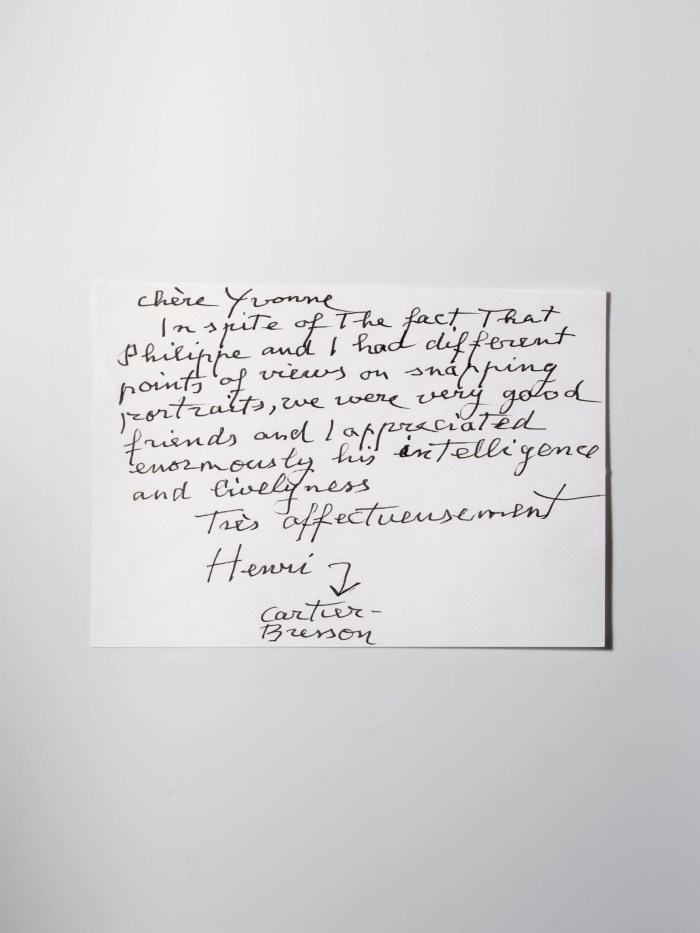 chère Yvonne
In spite of The fact That
Philippe and I had different
points of views on snapping
portraits, we were very good
friends and I appreciated
enormously his intelligence
and livelyness
Très affectueusement
Henri
Cartier-
Bresson